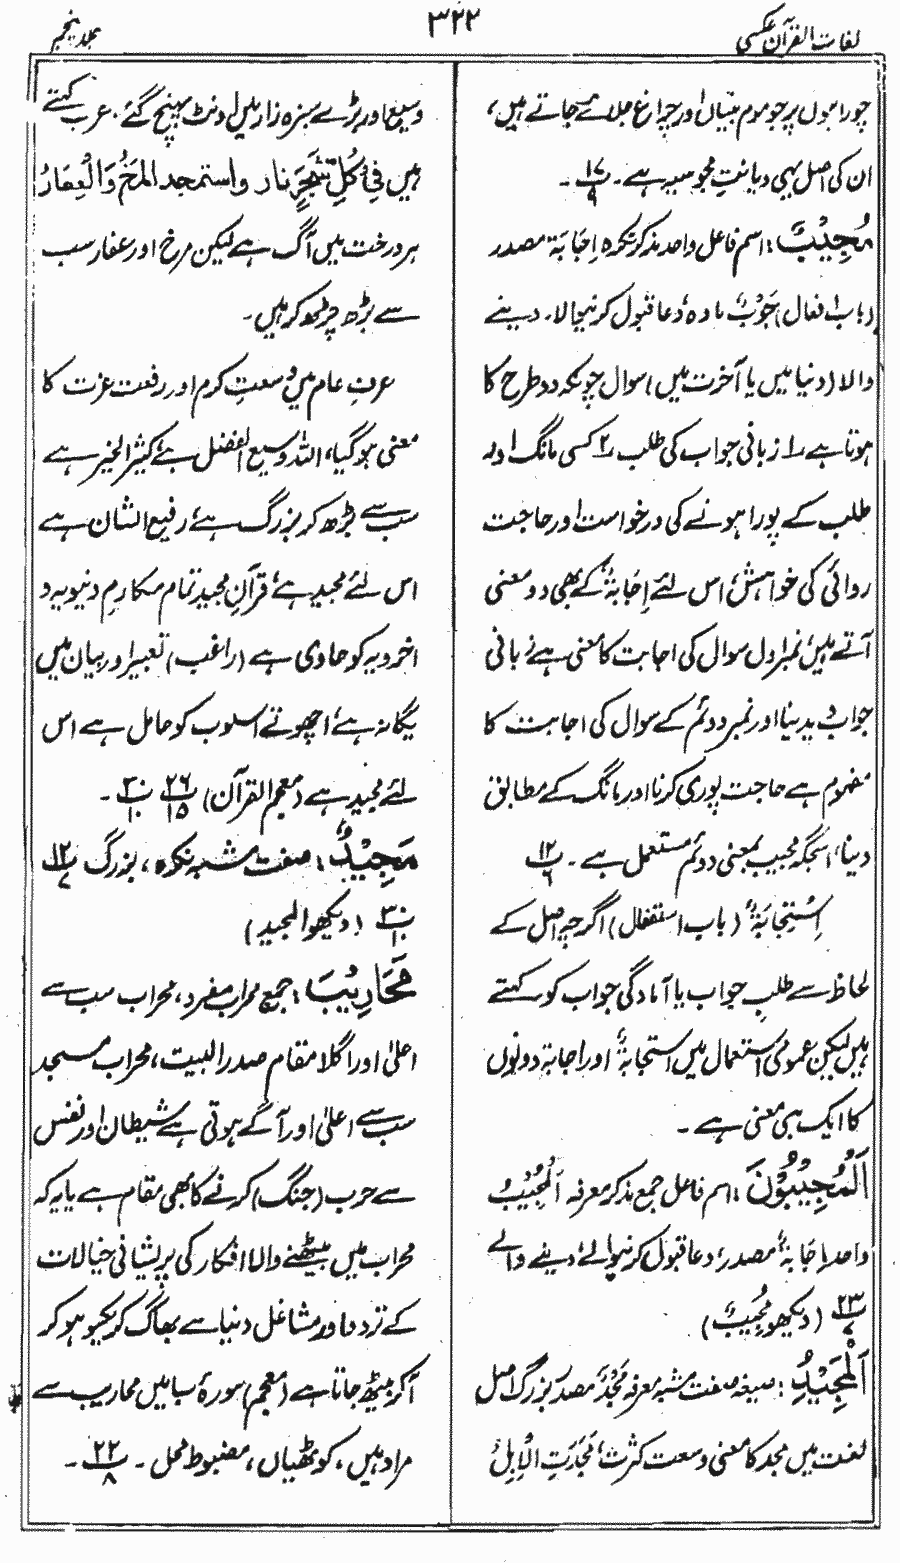 لغات القرآن عکسی
۳۲۲
جلد پنجم
چوراہوں پر جو موم بتیاں اور چراغ جلائے جاتے ہیں،
ان کی اصل یہی دیانتِ مجوسیہ ہے۔ ۱۷/۹ ۔
مُجِیْبٌ: اسم فاعل واحد مذکر نکرہ اِجَابَۃ مصدر
(باب افعال) جَوْبٌ مادہ دعا قبول کرنیوالا۔ دینے
والا (دنیا میں یا آخرت میں) سوال چونکہ دو طرح کا
ہوتا ہے ۱؎ زبانی جواب کی طلب ۲؎ کسی مانگ اور
طلب کے پورا ہونے کی درخواست اور حاجت
روائی کی خواہش، اس لئے اِجَابَۃٌ کے بھی دو معنی
آتے ہیں، نمبر اول سوال کی اجابت کا معنی ہے زبانی
جواب دیدینا اور نمبر دوئم کے سوال کی اجابت کا
مفہوم ہے حاجت پوری کرنا اور مانگ کے مطابق
دینا، اسجگہ مجیب بمعنی دوئم مستعمل ہے۔ ۱۲/۶
اِسْتِجَابَۃٌ (باب استفعال) اگرچہ اصل کے
لحاظ سے طلبِ جواب یا آمادگی جواب کو کہتے
ہیں لیکن عمومی استعمال میں استجابۃٌ اور اجابۃ دونوں
کا ایک ہی معنی ہے۔
اَلْمُجِیْبُوْنَ: اسم فاعل جمع مذکر معرفہ اَلْمُجِیْبُ
واحد اِجَابَۃٌ مصدر، دعا قبول کرنیوالے، دینے والے
۲۳/۷ (دیکھو مُجِیبٌ)
اَلْمَجِیْدُ: صیغہ صفت مشبہ معرفہ مَجْدٌ مصدر بزرگ اصل
لغت میں مجد کا معنی وسعت کثرت، مَجَدَتِ الْاِبِلُ
وسیع اور بڑے سبزہ زار میں اونٹ پہنچ گئے۔ عرب کہتے
ہیں فِیْ کُلِّ شَجَرٍ نار واستمجد المَرْخُ وَالْعِفَارُ
ہر درخت میں آگ ہے لیکن مرخ اور عفار سب
سے بڑھ چڑھ کر ہیں۔
عرفِ عام میں وسعتِ کرم اور رفعت عزت کا
معنی ہوگیا، اللہ وسیع الفضل ہے، کثیر الخیر ہے
سب سے بڑھ کر بزرگ ہے، رفیع الشان ہے
اس لئے مجید ہے، قرآن مجید تمام مکارمِ دنیویہ و
اخرویہ کو حاوی ہے (راغب) تعبیر اور بیان میں
یگانہ ہے، اچھوتے اسلوب کو حامل ہے اس
لئے مجید ہے (معجم القرآن) ۲۶/۱۵ ۳۰/۱۰ ۔
مَجِیْدٌ: صفت مشبہ نکرہ، بزرگ ۱۲/۷
۳۰/۱۰ (دیکھو المجید)
مَحَارِیْبَ: جمع محراب مفرد، محراب سب سے
اعلیٰ اور اگلا مقام صدر البیت، محراب مسجد
سب سے اعلیٰ اور آگے ہوتی ہے شیطان اور نفس
سے حرب (جنگ) کرنے کا بھی مقام ہے یا یہ کہ
محراب میں بیٹھنے والا افکار کی پریشانی خیالات
کے تردد اور مشاغل دنیا سے بھاگ کر یکسو ہو کر
آکر بیٹھ جاتا ہے (معجم) سورۂ سبا میں محاریب سے
مراد ہیں، کوٹھیاں، مضبوط محل۔ ۲۲/۸ ۔